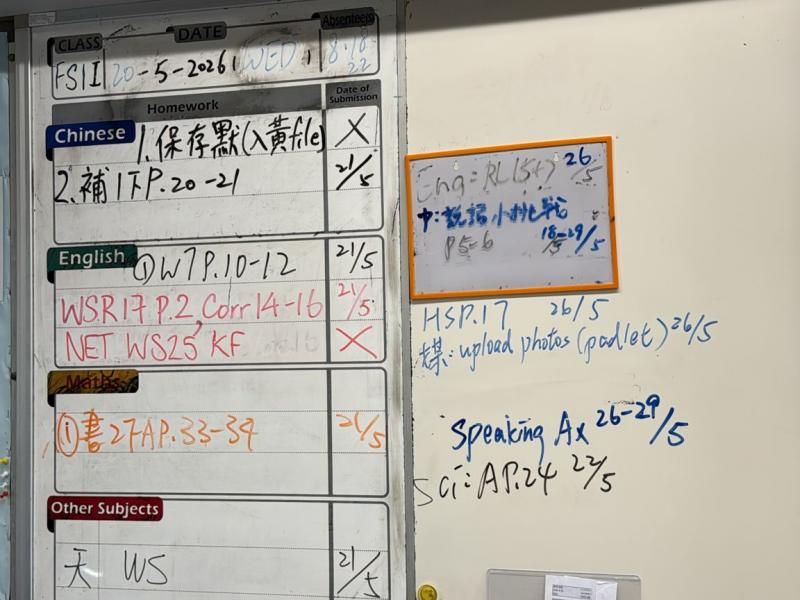 CLASS DATE Absentee(s)
FSII 20-5-2026, WED, 8.18
22
Homework Date of Submission
Chinese
1.保存默(入黃file) X
2.補1下P.20-21 21/5
English
①W7P.10-12 21/5
WSR17 P.2, Corr14-16 21/5
NET WS25 KF X
Maths
①書27AP.33-34 21/5
Other Subjects
天 WS 21/5
Eng: RL(5+) 26/5
中: 說話小挑戰 18-29/5
P5-6
HSP.17 26/5
upload photos (padlet) 26/5
Speaking Ax 26-29/5
Sci: AP.24 22/5